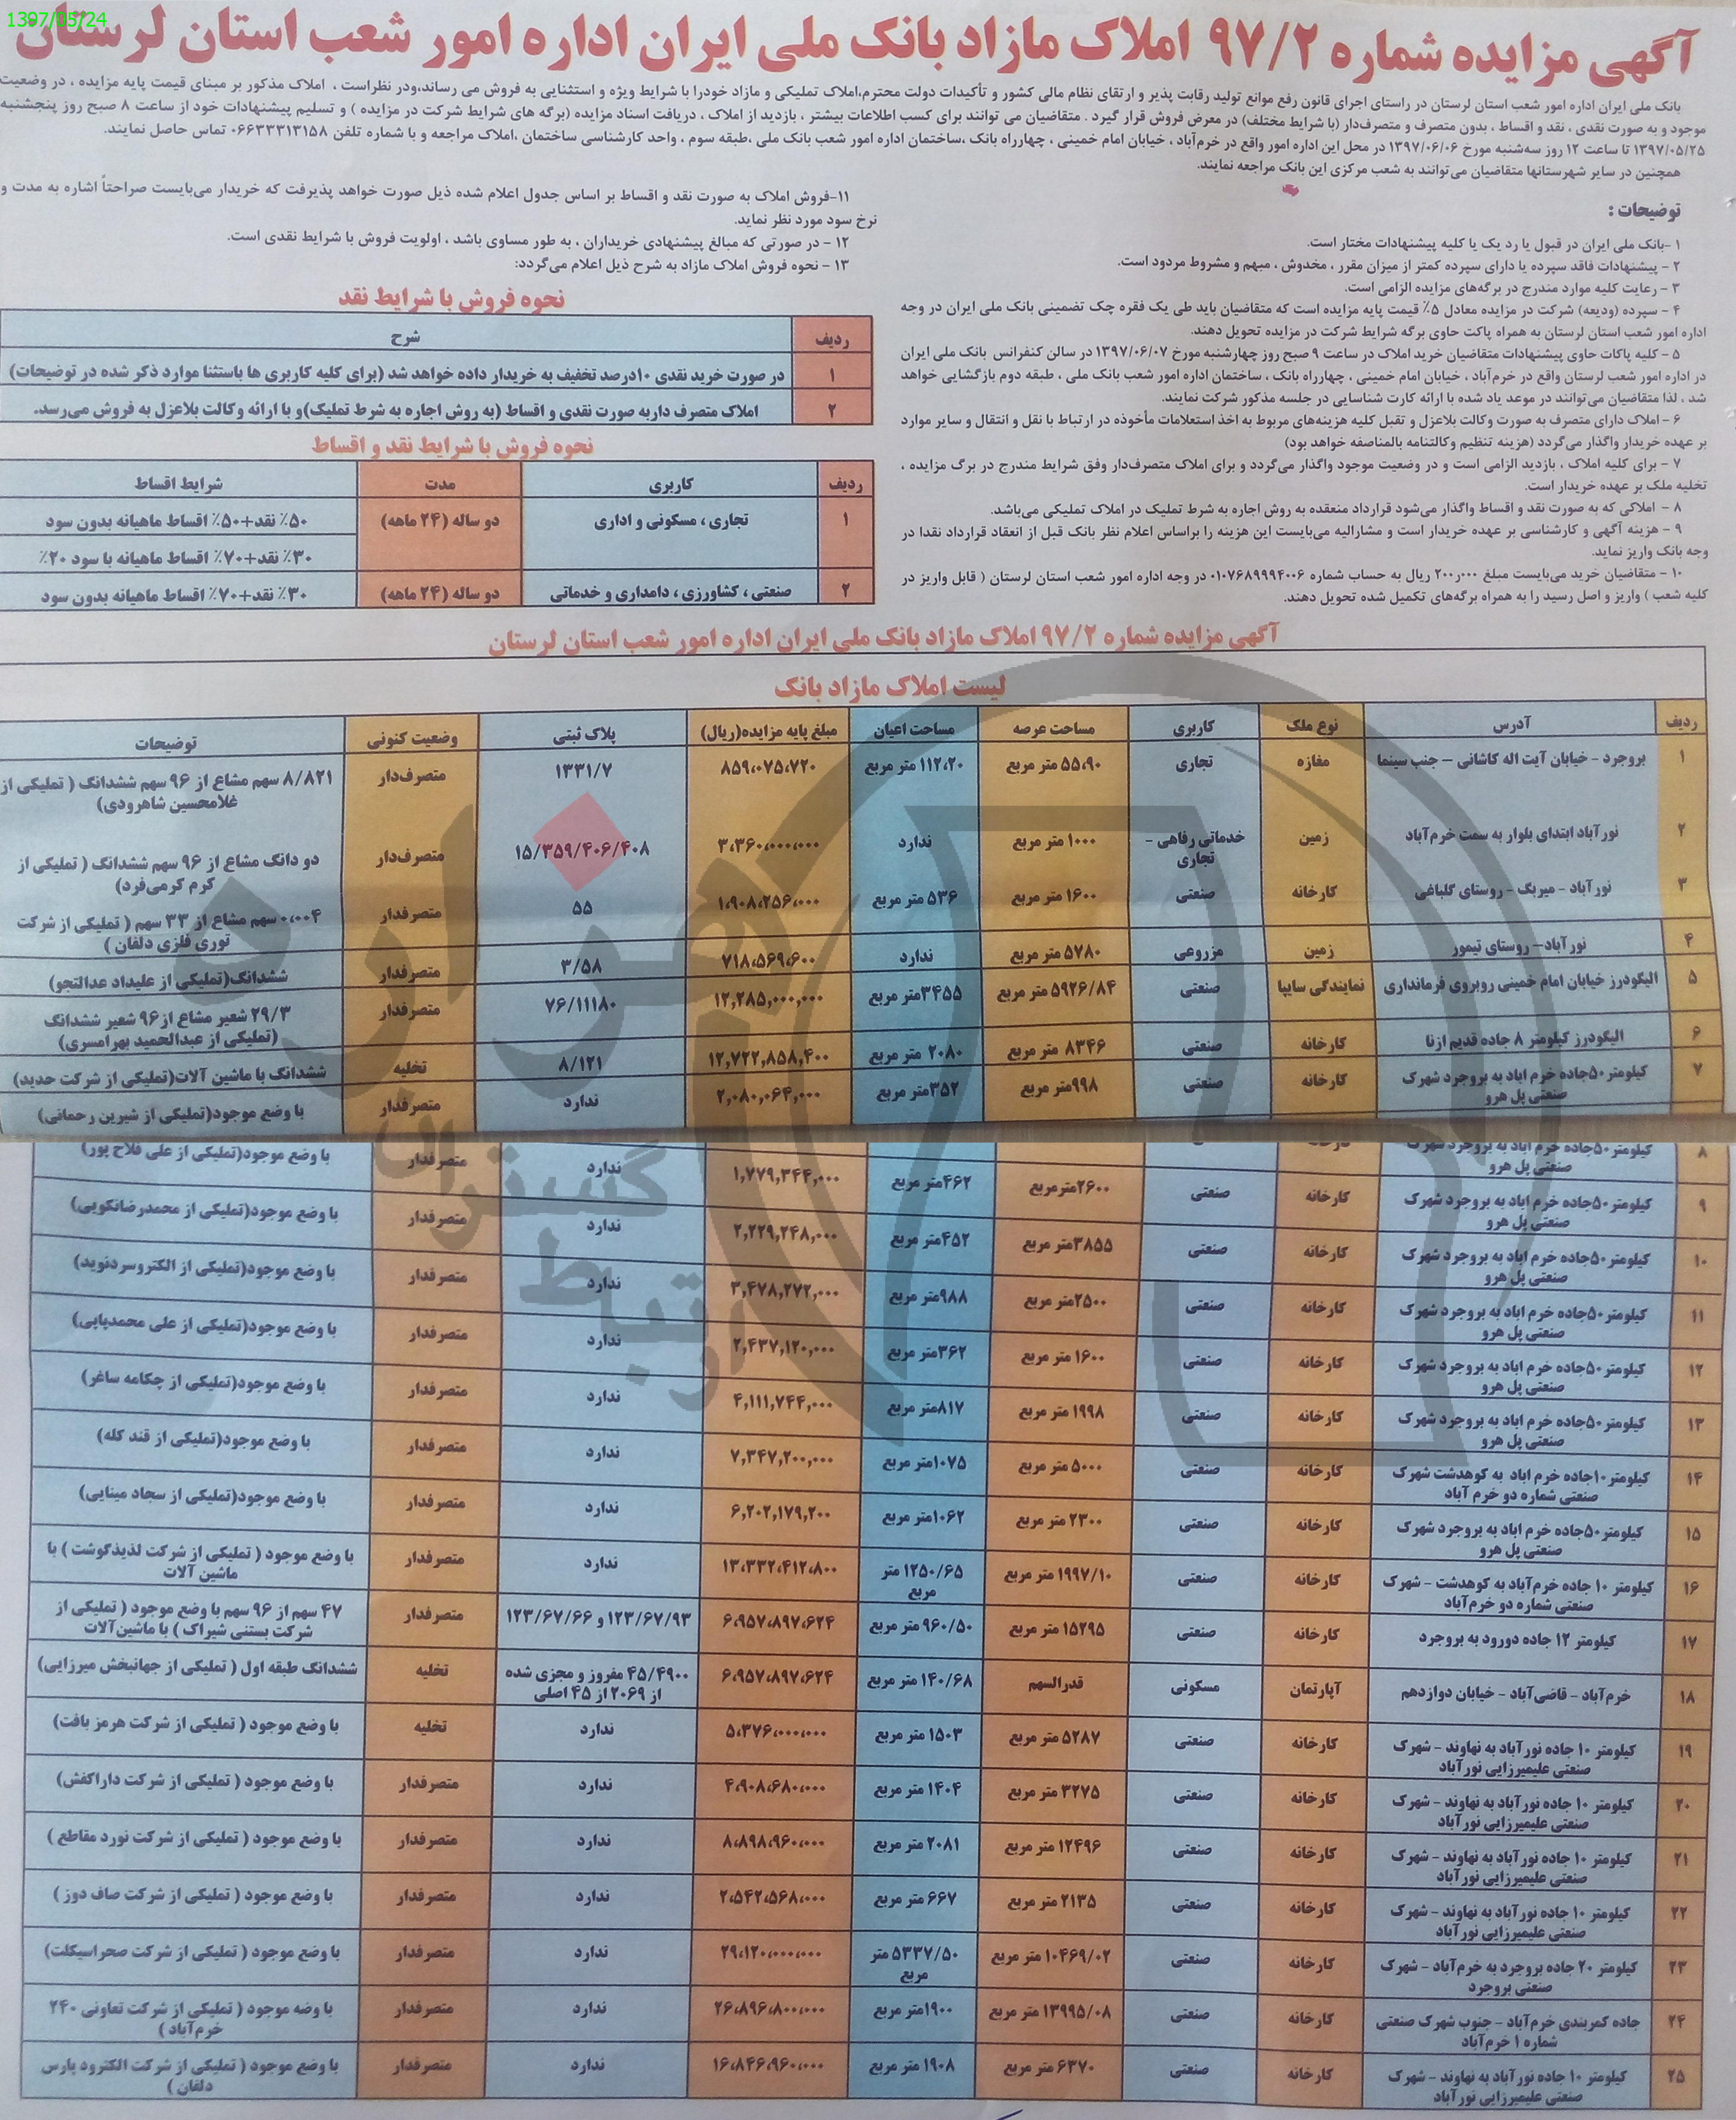 1397/05/24
آگهی مزایده شماره ۹۷/۲ املاک مازاد بانک ملی ایران اداره امور شعب استان لرستان
بانک ملی ایران اداره امور شعب استان لرستان در راستای اجرای قانون رفع موانع تولید رقابت پذیر و ارتقای نظام مالی کشور و تأکیدات دولت محترم،املاک تملیکی و مازاد خودرا با شرایط ویژه و استثنایی به فروش می رساند،ودر نظراست ، املاک مذکور بر مبنای قیمت پایه مزایده ، در وضعیت
موجود و به صورت نقدی ، نقد و اقساط ، بدون متصرف و متصرف‌دار (با شرایط مختلف) در معرض فروش قرار گیرد . متقاضیان می توانند برای کسب اطلاعات بیشتر ، بازدید از املاک ، دریافت اسناد مزایده (برگه های شرایط شرکت در مزایده ) و تسلیم پیشنهادات خود از ساعت ۸ صبح روز پنجشنبه
۱۳۹۷/۰۵/۲۵ تا ساعت ۱۲ روز سه‌شنبه مورخ ۱۳۹۷/۰۶/۰۶ در محل این اداره امور واقع در خرم‌آباد ، خیابان امام خمینی ، چهارراه بانک ،ساختمان اداره امور شعب بانک ملی ،طبقه سوم ، واحد کارشناسی ساختمان ،املاک مراجعه و با شماره تلفن ۰۶۶۳۳۳۱۳۱۵۸ تماس حاصل نمایند.
همچنین در سایر شهرستانها متقاضیان می‌توانند به شعب مرکزی این بانک مراجعه نمایند.
توضیحات :
۱ -بانک ملی ایران در قبول یا رد یک یا کلیه پیشنهادات مختار است.
۲ - پیشنهادات فاقد سپرده یا دارای سپرده کمتر از میزان مقرر ، مخدوش ، مبهم و مشروط مردود است.
۳ - رعایت کلیه موارد مندرج در برگه‌های مزایده الزامی است.
۴ - سپرده (ودیعه) شرکت در مزایده معادل ۵٪ قیمت پایه مزایده است که متقاضیان باید طی یک فقره چک تضمینی بانک ملی ایران در وجه
اداره امور شعب استان لرستان به همراه پاکت حاوی برگه شرایط شرکت در مزایده تحویل دهند.
۵ - کلیه پاکات حاوی پیشنهادات متقاضیان خرید املاک در ساعت ۹ صبح روز چهارشنبه مورخ ۱۳۹۷/۰۶/۰۷ در سالن کنفرانس بانک ملی ایران
در اداره امور شعب لرستان واقع در خرم‌آباد ، خیابان امام خمینی ، چهارراه بانک ، ساختمان اداره امور شعب بانک ملی ، طبقه دوم بازگشایی خواهد
شد ، لذا متقاضیان می‌توانند در موعد یاد شده با ارائه کارت شناسایی در جلسه مذکور شرکت نمایند.
۶ - املاک دارای متصرف به صورت وکالت بلاعزل و تقبل کلیه هزینه‌های مربوط به اخذ استعلامات مأخوذه در ارتباط با نقل و انتقال و سایر موارد
بر عهده خریدار واگذار می‌گردد (هزینه تنظیم وکالتنامه بالمناصفه خواهد بود)
۷ - برای کلیه املاک ، بازدید الزامی است و در وضعیت موجود واگذار می‌گردد و برای املاک متصرف‌دار وفق شرایط مندرج در برگ مزایده ،
تخلیه ملک بر عهده خریدار است.
۸ - املاکی که به صورت نقد و اقساط واگذار می‌شود قرارداد منعقده به روش اجاره به شرط تملیک در املاک تملیکی می‌باشد.
۹ - هزینه آگهی و کارشناسی بر عهده خریدار است و مشارالیه می‌بایست این هزینه را براساس اعلام نظر بانک قبل از انعقاد قرارداد نقدا در
وجه بانک واریز نماید.
۱۰ - متقاضیان خرید می‌بایست مبلغ ۲۰۰٫۰۰۰ ریال به حساب شماره ۰۱۰۷۶۸۹۹۹۴۰۰۶ در وجه اداره امور شعب استان لرستان ( قابل واریز در
کلیه شعب ) واریز و اصل رسید را به همراه برگه‌های تکمیل شده تحویل دهند.
۱۱-فروش املاک به صورت نقد و اقساط بر اساس جدول اعلام شده ذیل صورت خواهد پذیرفت که خریدار می‌بایست صراحتاً اشاره به مدت و
نرخ سود مورد نظر نماید.
۱۲ - در صورتی که مبالغ پیشنهادی خریداران ، به طور مساوی باشد ، اولویت فروش با شرایط نقدی است.
۱۳ - نحوه فروش املاک مازاد به شرح ذیل اعلام می‌گردد:
نحوه فروش با شرایط نقد
ردیف شرح
۱ در صورت خرید نقدی ۱۰درصد تخفیف به خریدار داده خواهد شد (برای کلیه کاربری ها باستثنا موارد ذکر شده در توضیحات)
۲ املاک متصرف داربه صورت نقدی و اقساط (به روش اجاره به شرط تملیک)و با ارائه وکالت بلاعزل به فروش می‌رسد.
نحوه فروش با شرایط نقد و اقساط
ردیف کاربری مدت شرایط اقساط
۱ تجاری ، مسکونی و اداری دو ساله (۲۴ ماهه) ۵۰٪ نقد+۵۰٪ اقساط ماهیانه بدون سود
۳۰٪ نقد+۷۰٪ اقساط ماهیانه با سود ۲۰٪
۲ صنعتی ، کشاورزی ، دامداری و خدماتی دو ساله (۲۴ ماهه) ۳۰٪ نقد+۷۰٪ اقساط ماهیانه بدون سود
آگهی مزایده شماره ۹۷/۲ املاک مازاد بانک ملی ایران اداره امور شعب استان لرستان
لیست املاک مازاد بانک
ردیف آدرس نوع ملک کاربری مساحت عرصه مساحت اعیان مبلغ پایه مزایده(ریال) پلاک ثبتی وضعیت کنونی توضیحات
۱ بروجرد - خیابان آیت اله کاشانی – جنب سینما مغازه تجاری ۵۵،۹۰ متر مربع ۱۱۲،۲۰ متر مربع ۸۵۹،۰۷۵،۷۲۰ ۱۳۳۱/۷ متصرف‌دار ۸/۸۲۱ سهم مشاع از ۹۶ سهم ششدانگ ( تملیکی از
غلامحسین شاهرودی)
۲ نورآباد ابتدای بلوار به سمت خرم‌آباد زمین خدماتی رفاهی - ۱۰۰۰ متر مربع ندارد ۳،۳۶۰،۰۰۰،۰۰۰ ۱۵/۳۵۹/۴۰۶/۴۰۸ متصرف‌دار دو دانگ مشاع از ۹۶ سهم ششدانگ ( تملیکی از
تجاری کرم کرمی‌فرد)
۳ نورآباد - میربگ - روستای گلباغی کارخانه صنعتی ۱۶۰۰ متر مربع ۵۳۶ متر مربع ۱،۹۰۸،۲۵۶،۰۰۰ ۵۵ متصرفدار ۰،۰۰۴ سهم مشاع از ۳۳ سهم ( تملیکی از شرکت
توری فلزی دلفان )
۴ نورآباد- روستای تیمور زمین مزروعی ۵۷۸۰ متر مربع ندارد ۷۱۸،۵۶۹،۶۰۰ ۳/۵۸ متصرفدار ششدانگ(تملیکی از علیداد عدالتجو)
۵ الیگودرز خیابان امام خمینی روبروی فرمانداری نمایندگی سایپا صنعتی ۵۹۲۶/۸۴ متر مربع ۳۴۵۵متر مربع ۱۲,۲۸۵,۰۰۰,۰۰۰ ۷۶/۱۱۱۸۰ متصرفدار ۲۹/۳ شعیر مشاع از۹۶ شعیر ششدانگ
(تملیکی از عبدالحمید بهرامسری)
۶ الیگودرز کیلومتر ۸ جاده قدیم ازنا کارخانه صنعتی ۸۳۴۶ متر مربع ۲۰۸۰ متر مربع ۱۲,۷۲۲,۸۵۸,۴۰۰ ۸/۱۲۱ تخلیه ششدانگ با ماشین آلات(تملیکی از شرکت حدید)
۷ کیلومتر ۵۰جاده خرم اباد به بروجرد شهرک کارخانه صنعتی ۹۹۸متر مربع ۳۵۲متر مربع ۲,۰۸۰,۰۶۴,۰۰۰ ندارد متصرفدار با وضع موجود(تملیکی از شیرین رحمانی)
صنعتی پل هرو
۸ کیلومتر ۵۰جاده خرم اباد به بروجرد شهرک کارخانه ۱,۷۷۹,۳۴۴,۰۰۰ ندارد متصرفدار با وضع موجود(تملیکی از علی فلاح پور)
صنعتی پل هرو
۹ کیلومتر ۵۰جاده خرم اباد به بروجرد شهرک کارخانه صنعتی ۲۶۰۰مترمربع ۴۶۲متر مربع ۲,۲۲۹,۲۴۸,۰۰۰ ندارد متصرفدار با وضع موجود(تملیکی از محمدرضانکویی)
صنعتی پل هرو
۱۰ کیلومتر ۵۰جاده خرم اباد به بروجرد شهرک کارخانه صنعتی ۳۸۵۵متر مربع ۴۵۲متر مربع ۳,۴۷۸,۲۷۲,۰۰۰ ندارد متصرفدار با وضع موجود(تملیکی از الکتروسردنوید)
صنعتی پل هرو
۱۱ کیلومتر ۵۰جاده خرم اباد به بروجرد شهرک کارخانه صنعتی ۲۵۰۰متر مربع ۹۸۸متر مربع ۲,۴۳۷,۱۲۰,۰۰۰ ندارد متصرفدار با وضع موجود(تملیکی از علی محمدپاپی)
صنعتی پل هرو
۱۲ کیلومتر ۵۰جاده خرم اباد به بروجرد شهرک کارخانه صنعتی ۱۶۰۰ متر مربع ۳۶۲متر مربع ۴,۱۱۱,۷۴۴,۰۰۰ ندارد متصرفدار با وضع موجود(تملیکی از چکامه ساغر)
صنعتی پل هرو
۱۳ کیلومتر ۵۰جاده خرم اباد به بروجرد شهرک کارخانه صنعتی ۱۹۹۸ متر مربع ۸۱۷متر مربع ۷,۳۴۷,۲۰۰,۰۰۰ ندارد متصرفدار با وضع موجود(تملیکی از قند کله)
صنعتی پل هرو
۱۴ کیلومتر ۱۰جاده خرم اباد به کوهدشت شهرک کارخانه صنعتی ۵۰۰۰ متر مربع ۱۰۷۵متر مربع ۶,۲۰۲,۱۷۹,۲۰۰ ندارد متصرفدار با وضع موجود(تملیکی از سجاد مینایی)
صنعتی شماره دو خرم آباد
۱۵ کیلومتر ۵۰جاده خرم اباد به بروجرد شهرک کارخانه صنعتی ۲۳۰۰ متر مربع ۱۰۶۲متر مربع ۱۳،۳۳۲،۴۱۲،۸۰۰ ندارد متصرفدار با وضع موجود ( تملیکی از شرکت لذیذگوشت ) با
صنعتی پل هرو ماشین آلات
۱۶ کیلومتر ۱۰ جاده خرم‌آباد به کوهدشت - شهرک کارخانه صنعتی ۱۹۹۷/۱۰ متر مربع ۱۲۵۰/۶۵ متر
صنعتی شماره دو خرم‌آباد مربع
۱۷ کیلومتر ۱۲ جاده دورود به بروجرد کارخانه صنعتی ۱۵۲۹۵ متر مربع ۹۶۰/۵۰متر مربع ۶،۹۵۷،۸۹۷،۶۲۴ ۱۲۳/۶۷/۹۳ و ۱۲۳/۶۷/۶۶ متصرفدار ۴۷ سهم از ۹۶ سهم با وضع موجود ( تملیکی از
شرکت بستنی شیراک ) با ماشین‌آلات
۱۸ خرم‌آباد - قاضی‌آباد - خیابان دوازدهم آپارتمان مسکونی قدرالسهم ۱۴۰/۶۸ متر مربع ۶،۹۵۷،۸۹۷،۶۲۴ ۴۵/۴۹۰۰ مفروز و مجزی شده تخلیه ششدانگ طبقه اول ( تملیکی از جهانبخش میرزایی)
از ۲۰۶۹ از ۴۵ اصلی
۱۹ کیلومتر ۱۰ جاده نورآباد به نهاوند - شهرک کارخانه صنعتی ۵۲۸۷ متر مربع ۱۵۰۳ متر مربع ۵،۳۷۶،۰۰۰،۰۰۰ ندارد تخلیه با وضع موجود ( تملیکی از شرکت هرمز بافت)
صنعتی علیمیرزایی نورآباد
۲۰ کیلومتر ۱۰ جاده نورآباد به نهاوند - شهرک کارخانه صنعتی ۳۲۷۵ متر مربع ۱۴۰۴ متر مربع ۴،۹۰۸،۶۸۰،۰۰۰ ندارد متصرفدار با وضع موجود ( تملیکی از شرکت داراکفش)
صنعتی علیمیرزایی نورآباد
۲۱ کیلومتر ۱۰ جاده نورآباد به نهاوند - شهرک کارخانه صنعتی ۱۲۴۹۶ متر مربع ۲۰۸۱ متر مربع ۸،۸۹۸،۹۶۰،۰۰۰ ندارد متصرفدار با وضع موجود ( تملیکی از شرکت نورد مقاطع )
صنعتی علیمیرزایی نورآباد
۲۲ کیلومتر ۱۰ جاده نورآباد به نهاوند - شهرک کارخانه صنعتی ۲۱۳۵ متر مربع ۶۶۷ متر مربع ۲،۵۴۲،۵۶۸،۰۰۰ ندارد متصرفدار با وضع موجود ( تملیکی از شرکت صاف دوز )
صنعتی علیمیرزایی نورآباد
۲۳ کیلومتر ۲۰ جاده بروجرد به خرم‌آباد - شهرک کارخانه صنعتی ۱۰۴۶۹/۰۲ متر مربع ۵۳۳۷/۵۰ متر ۲۹،۱۲۰،۰۰۰،۰۰۰ ندارد متصرفدار با وضع موجود ( تملیکی از شرکت صحراسیکلت)
صنعتی بروجرد مربع
۲۴ جاده کمربندی خرم‌آباد - جنوب شهرک صنعتی کارخانه صنعتی ۱۳۹۹۵/۰۸ متر مربع ۱۹۰۰متر مربع ۲۶،۸۹۶،۸۰۰،۰۰۰ ندارد متصرفدار با وضه موجود ( تملیکی از شرکت تعاونی ۲۴۰
شماره ۱ خرم‌آباد خرم‌آباد )
۲۵ کیلومتر ۱۰ جاده نورآباد به نهاوند - شهرک کارخانه صنعتی ۶۳۷۰ متر مربع ۱۹۰۸ متر مربع ۱۶،۸۴۶،۹۶۰،۰۰۰ ندارد متصرفدار با وضع موجود ( تملیکی از شرکت الکترود پارس
صنعتی علیمیرزایی نورآباد دلفان )
هزاره
گستران
ارتباط